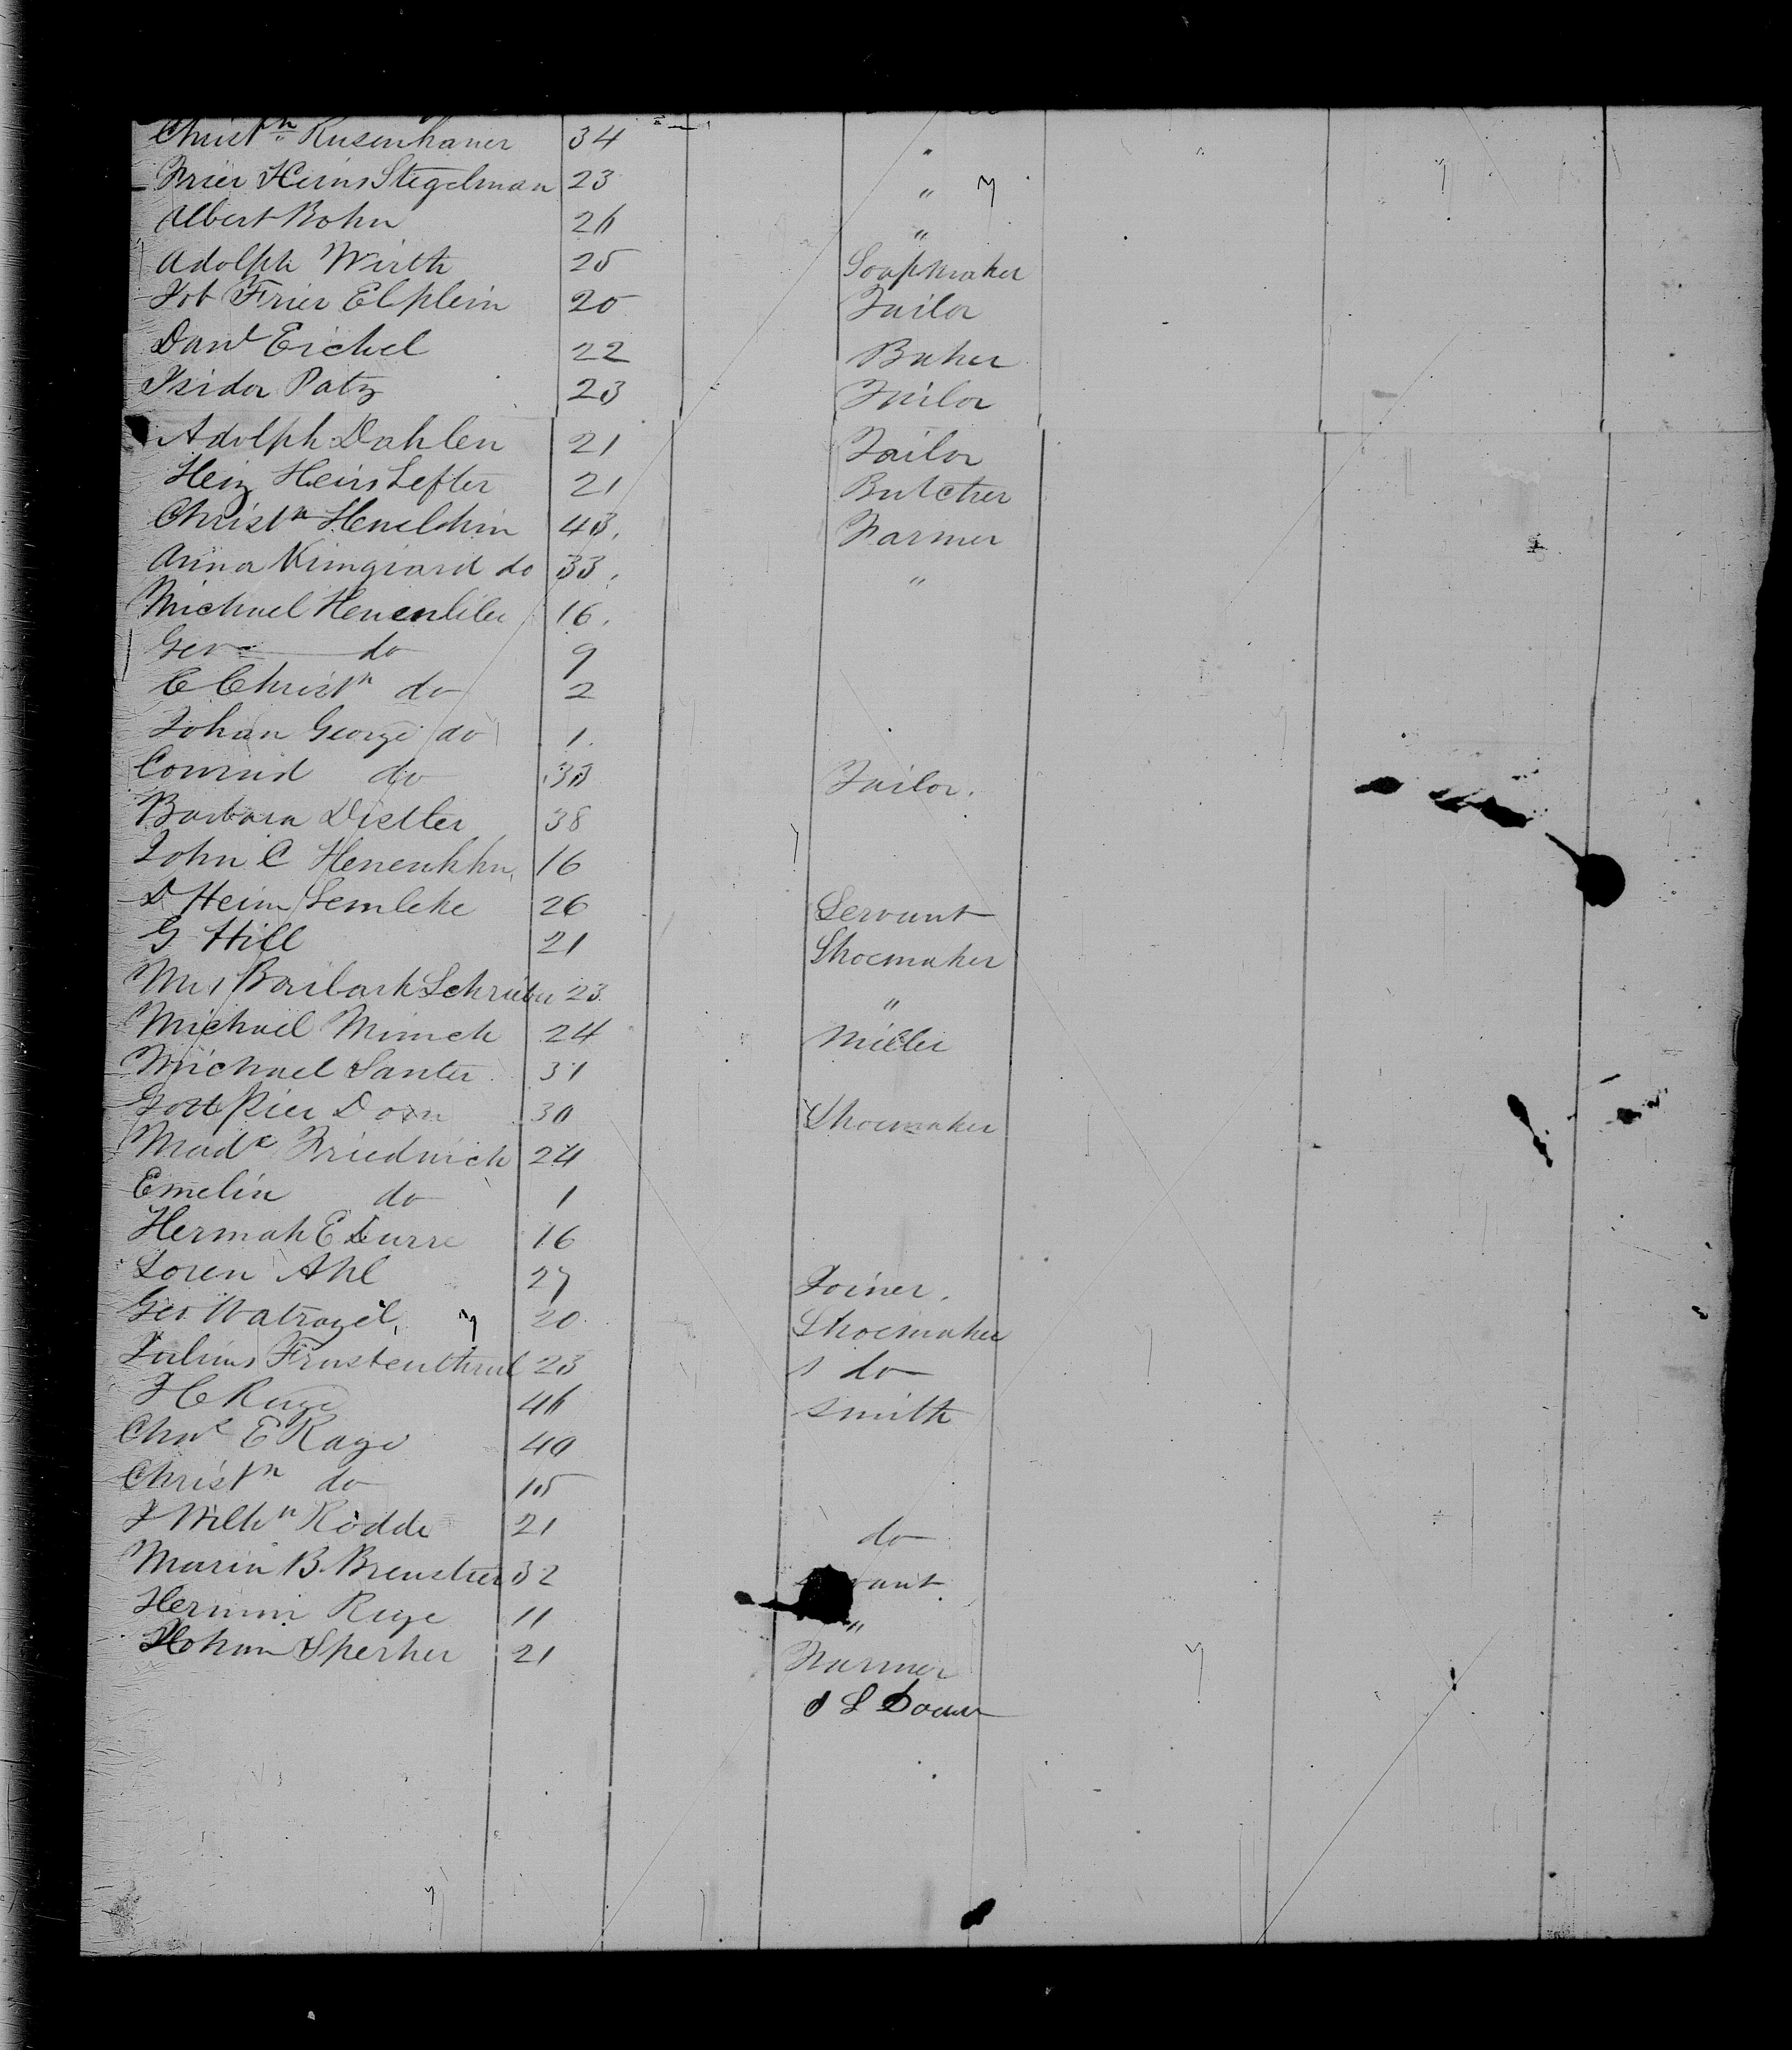 Christn Rusenhaner 34 "
Frier Heins Stegelman 23 "
Albert Bohn 26 "
Adolph Wirth 25 Soapmaker
Job Frier Elplein 20 Tailor
Danl Eichel 22 Baker
Isidor Patz 23 Tailor
Adolph Dahlen 21 Tailor
Hein Heins Lefter 21 Butcher
Christn Heuelchin 43 Farmer
Anna Kimgiard do 33 "
Michael Heuenliler 16
Geo do 9
C Christn do 2
Johan George do 1
Conrad do 33 Tailor
Barbara Distler 38
John C 16
D Heim Lemleke 26 Servant
G Hill 21 Shoemaker
Mrs Schrieber 23 "
Michael Minch 24 Miller
Michael Santer 31
Dorn 30 Shoemaker
Made Friedrich 24
Emelin do 1
Hermah E Durre 16
Loren Ahl 27 Joiner
Geo Watrozel 20 Shoemaker
Julius 23 do
H C Ruge 46 Smith
E Rage 40
Christn do 15
J Wilhn Rodde 21 do
Maria B. Breustier 32
Hermin Ruge 11 "
Johan Sperher 21 Farmer